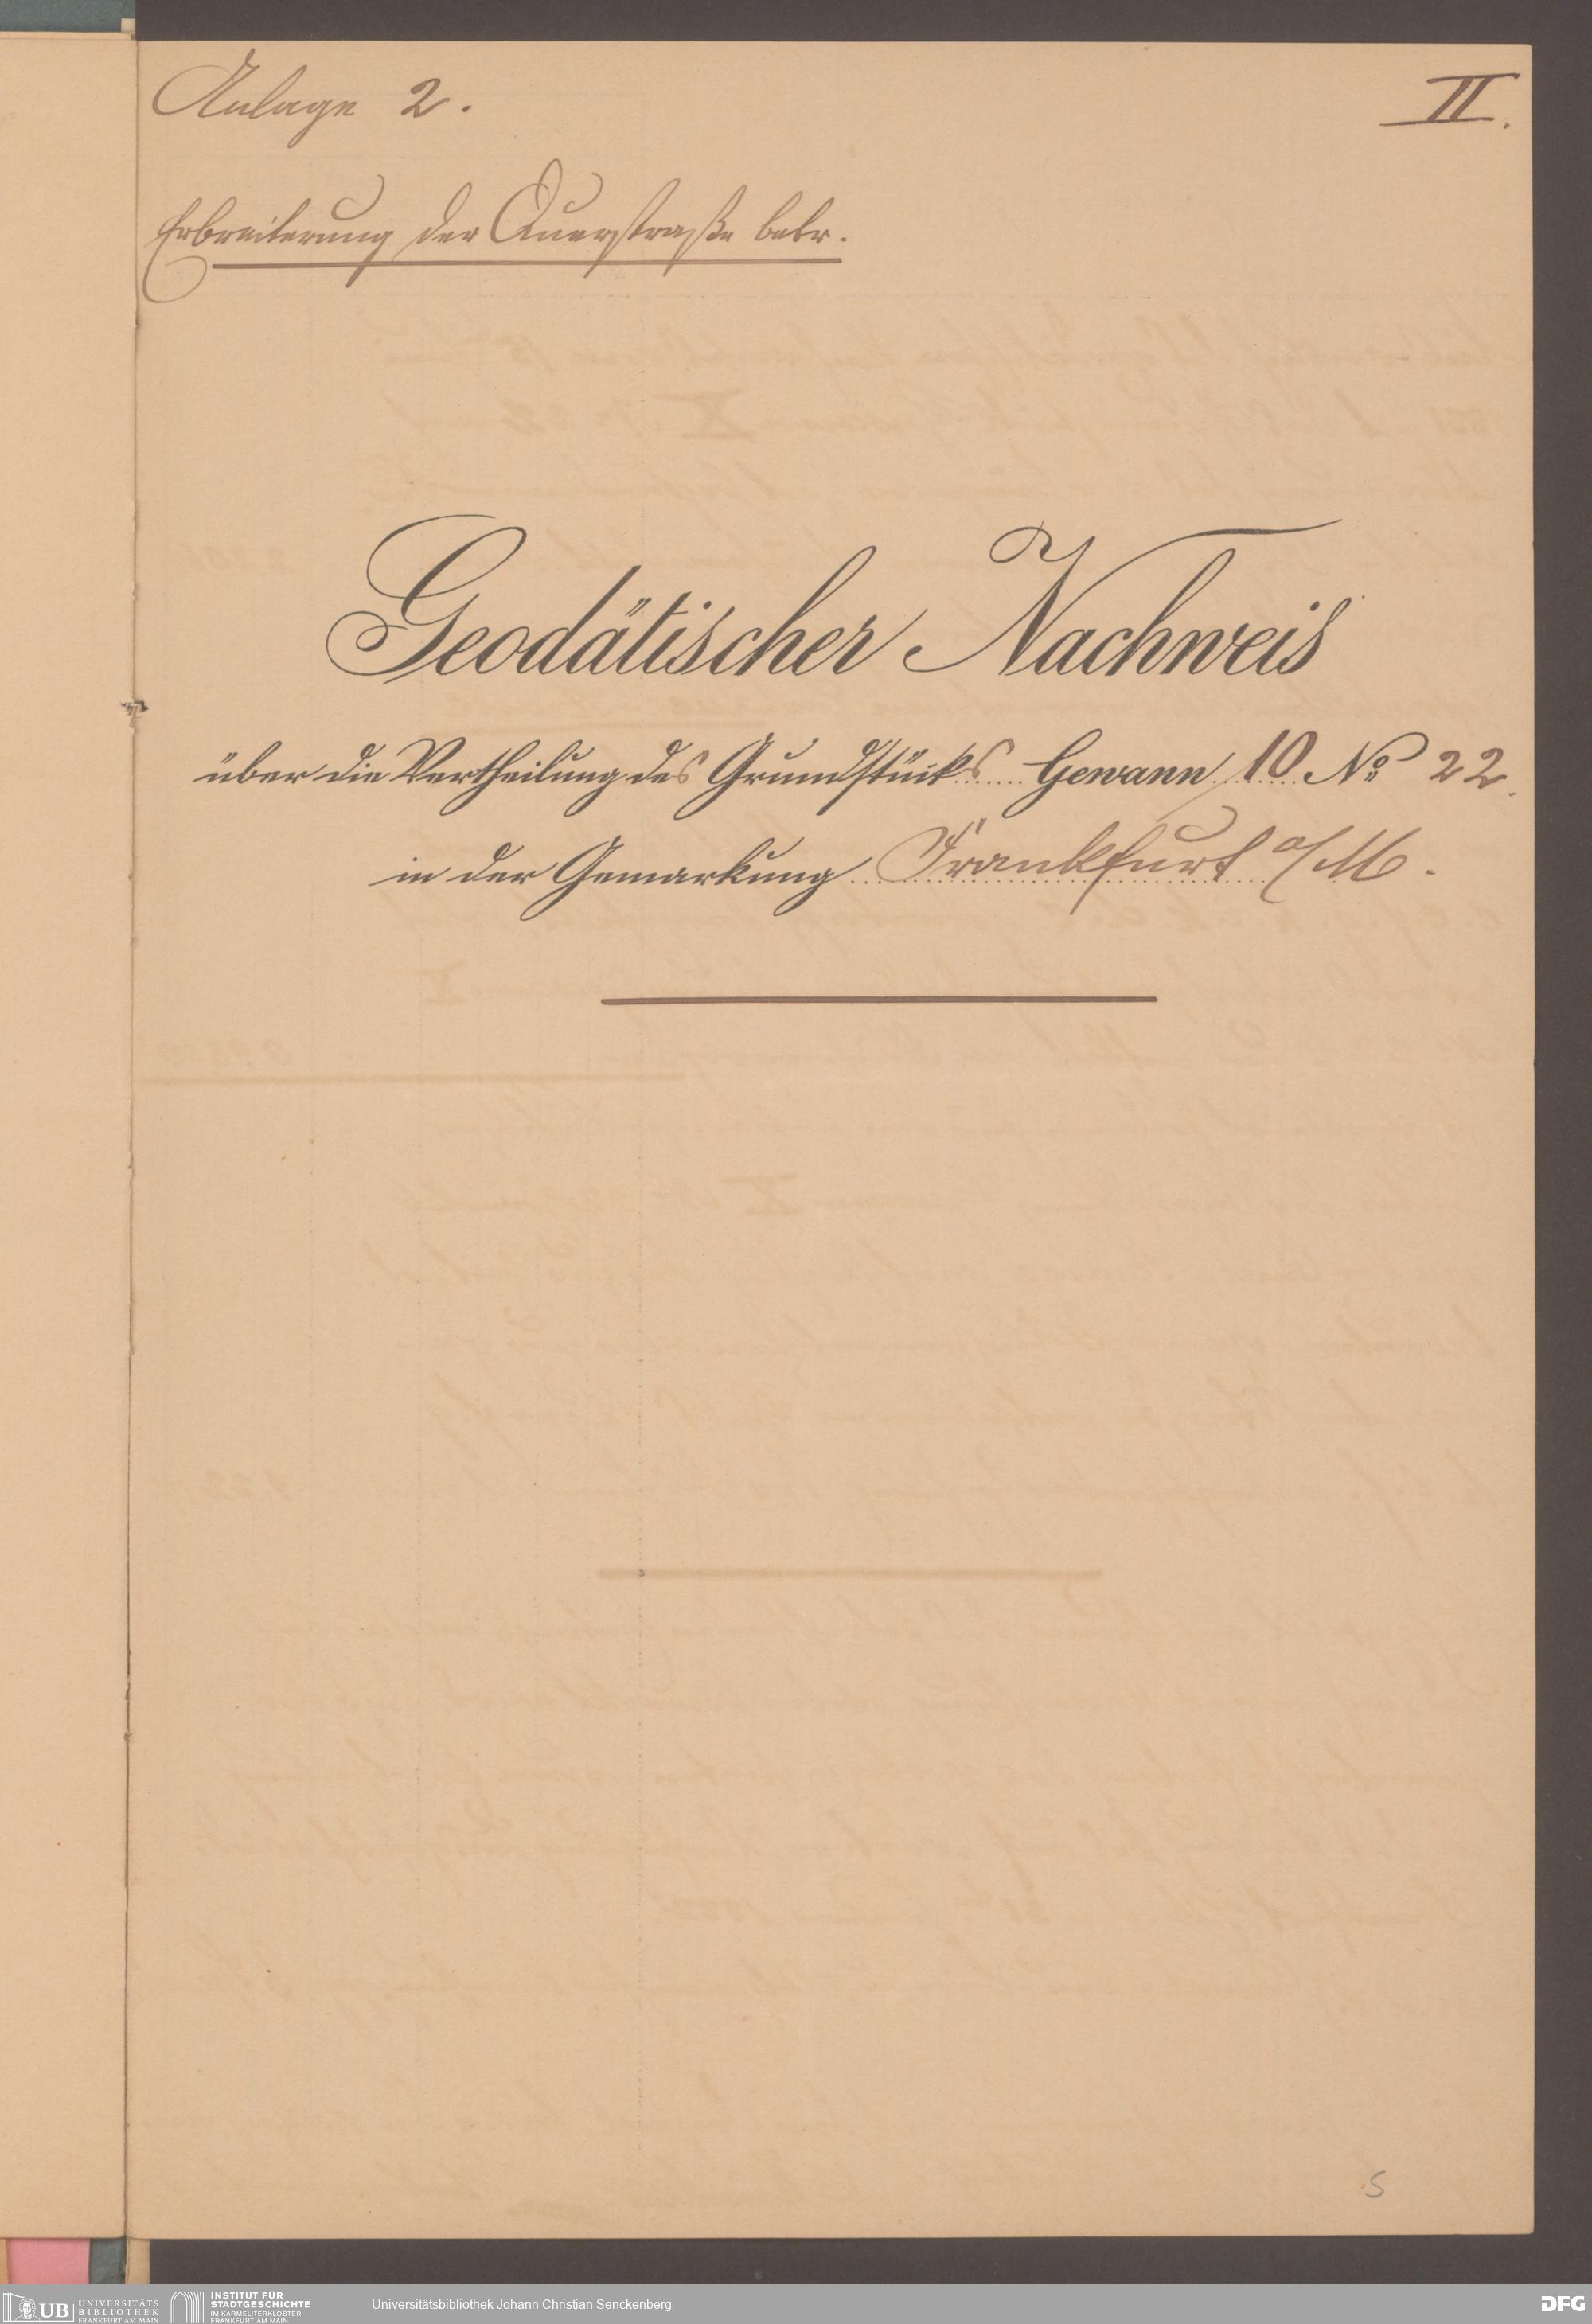 Anlage 2.
II.
Erbreiterung der Querstraße betr.
Geodätischer Nachweis
über die Vertheilung des Grundstücks Gewann 10 No 22.
in der Gemarkung Frankfurt a/M.
5
UB UNIVERSITÄTS
BIBLIOTHEK
FRANKFURT AM MAIN
INSTITUT FÜR
STADTGESCHICHTE
IM KARMELITERKLOSTER
FRANKFURT AM MAIN
Universitätsbibliothek Johann Christian Senckenberg
DFG